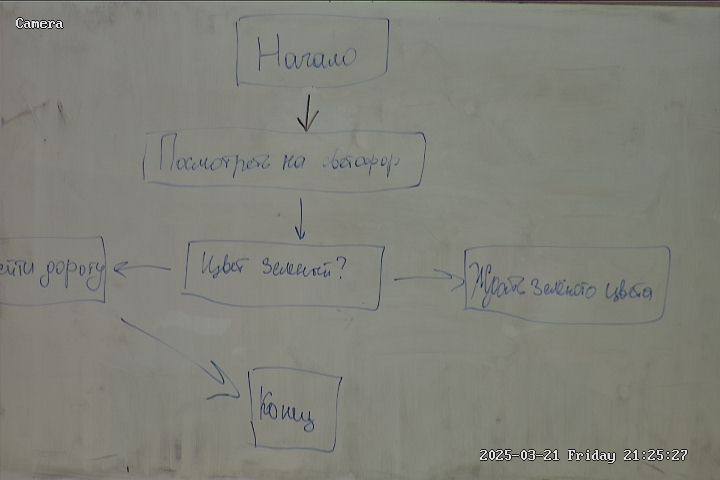 Camera
Начало
Посмотреть на светофор
Цвет зелёный?
ейти дорогу
Ждать зелёного цвета
Конец
2025-03-21 Friday 21:25:27